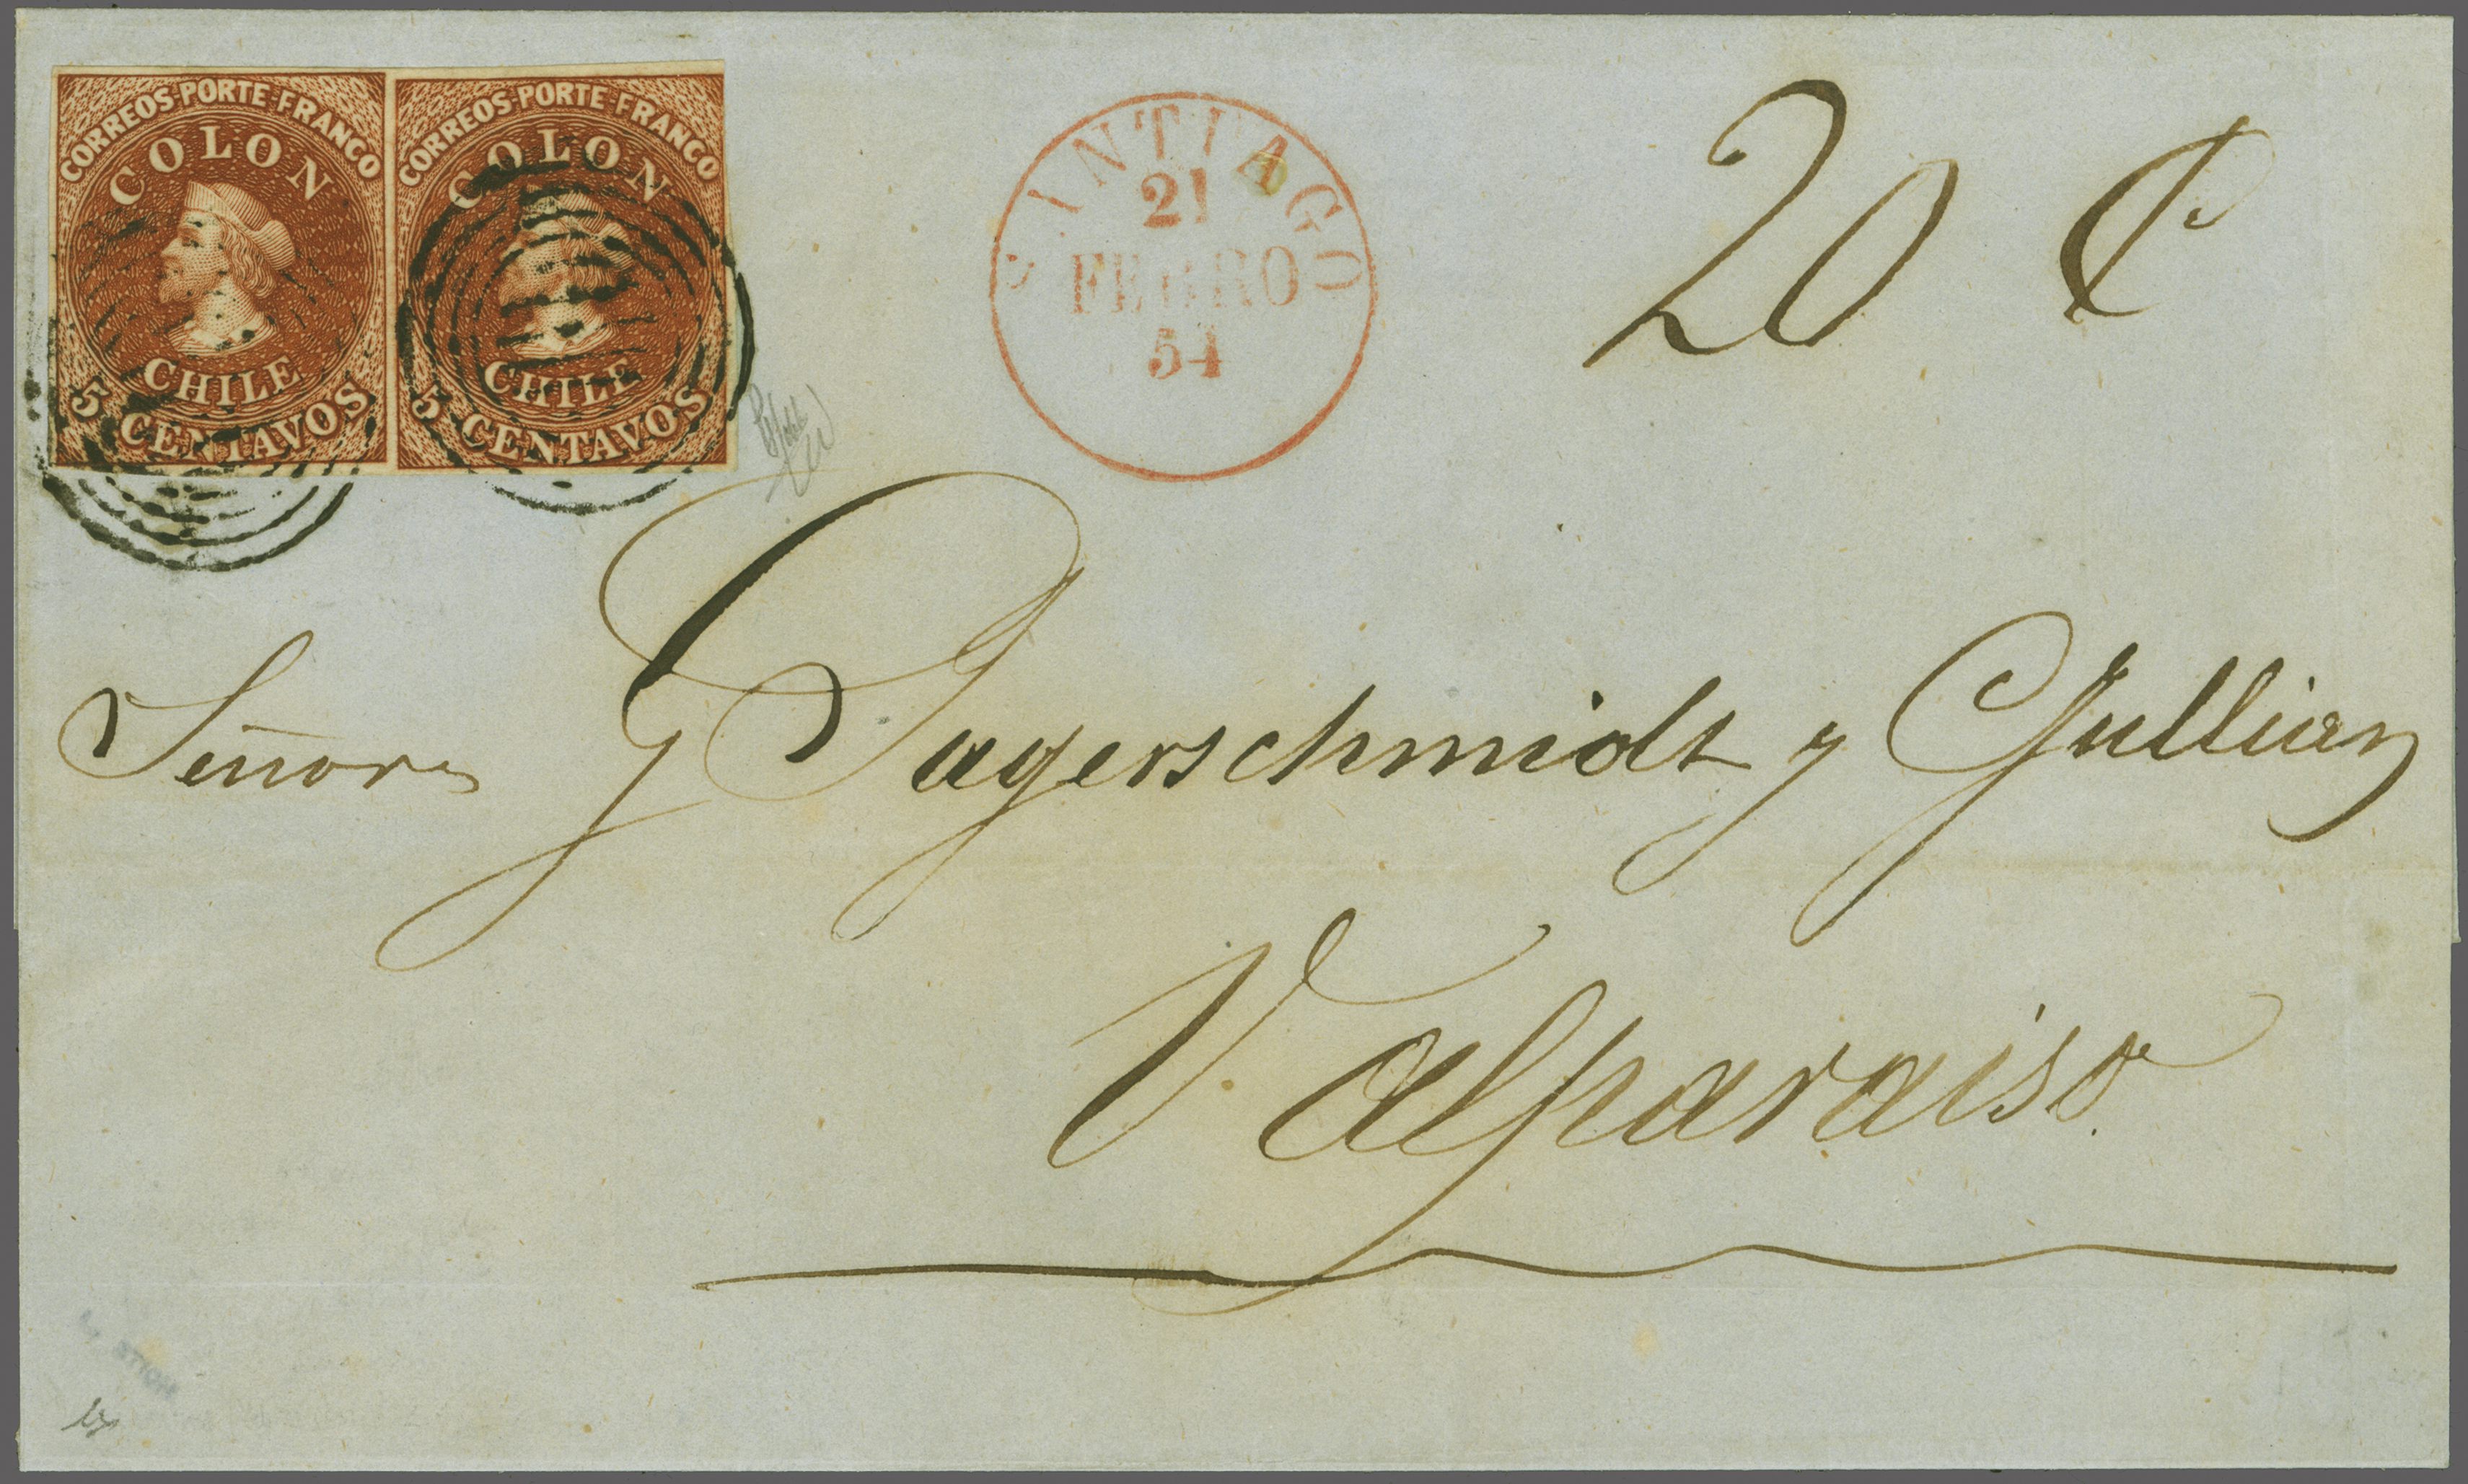 CORREOS-PORTE-FRANCO
COLON
CHILE
5 CENTAVOS
CORREOS-PORTE-FRANCO
COLON
CHILE
5 CENTAVOS
SANTIAGO
21
FEBRO
54
20 ¢
Señores Jagerschmidt y Jullian
Valparaiso